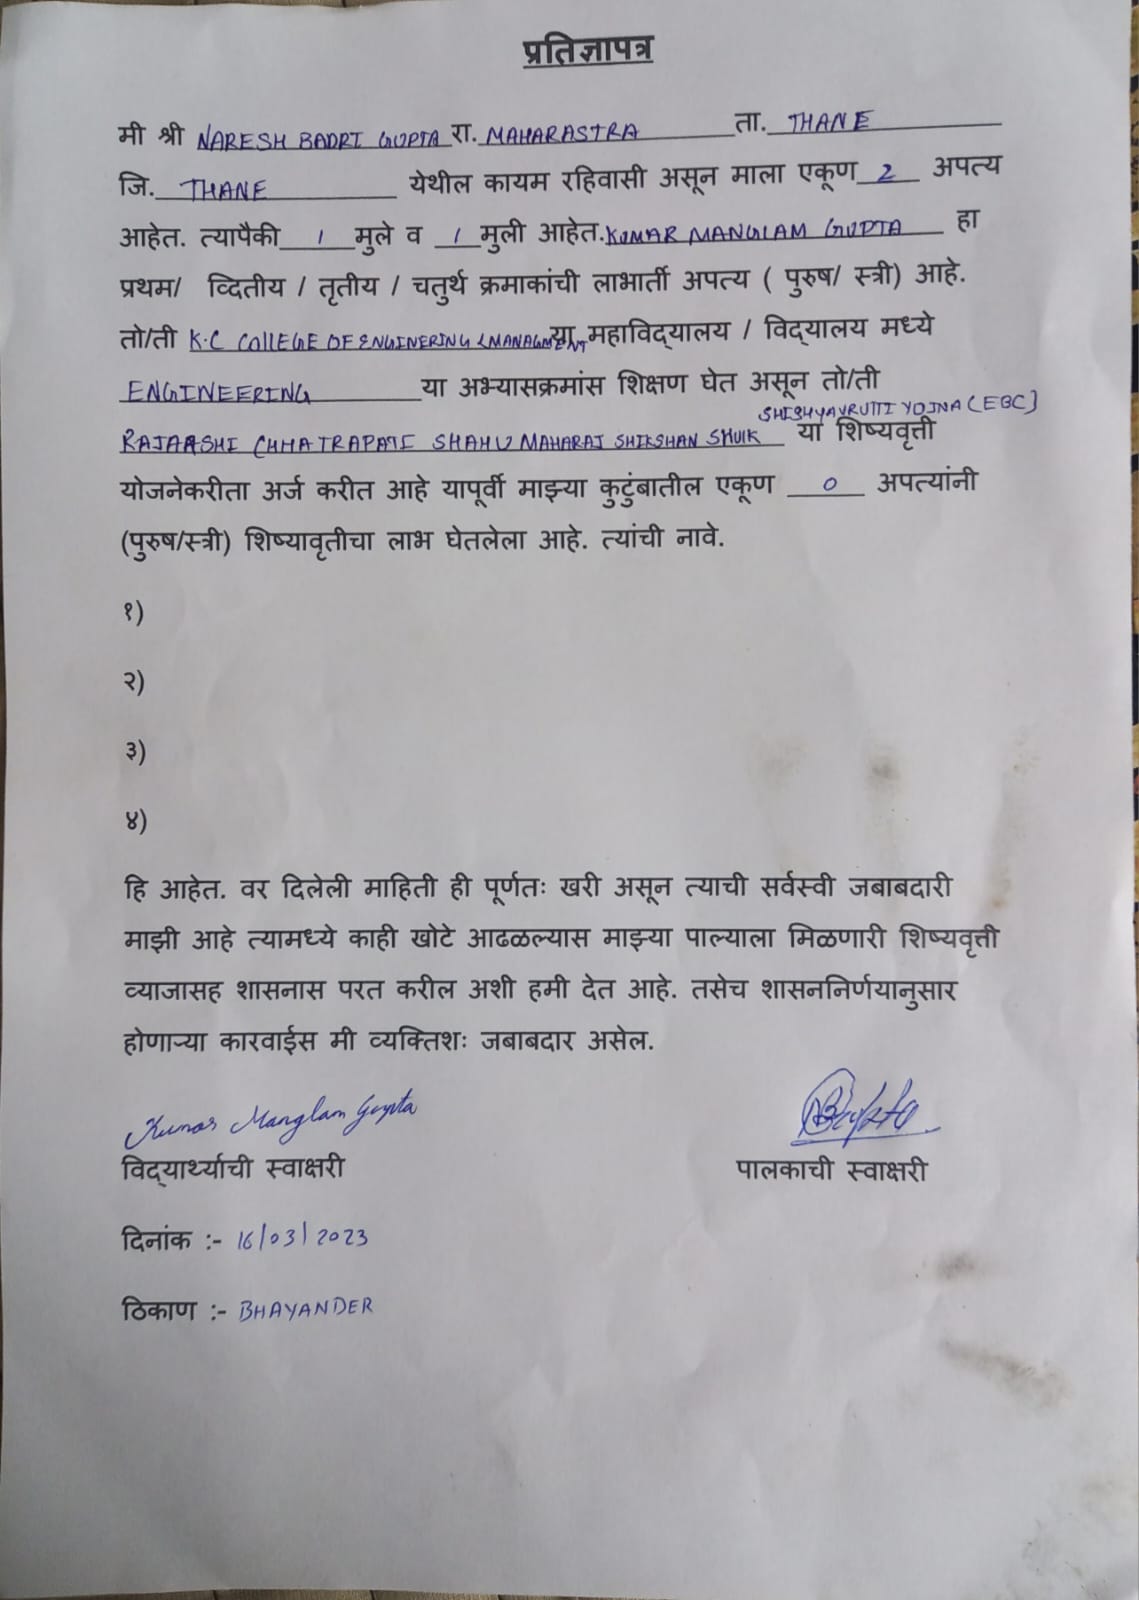 प्रतिज्ञापत्र
मी श्री NARESH BADRI GUPTA रा. MAHARASTRA ता. THANE
जि. THANE येथील कायम रहिवासी असून माला एकूण 2 अपत्य
आहेत. त्यापैकी 1 मुले व 1 मुली आहेत. KUMAR MANGLAM GUPTA हा
प्रथम/ व्दितीय / तृतीय / चतुर्थ क्रमाकांची लाभार्ती अपत्य ( पुरुष/ स्त्री) आहे.
तो/ती K.C COllEGE OF ENGINERING & MANAGMENT या महाविद्यालय / विद्यालय मध्ये
ENGINEERING या अभ्यासक्रमांस शिक्षण घेत असून तो/ती
SHISHYAVRUTTI YOJNA (EBC)
RAJARSHI CHHATRAPATI SHAHU MAHARAJ SHIKSHAN SHULK या शिष्यवृत्ती
योजनेकरीता अर्ज करीत आहे यापूर्वी माझ्या कुटुंबातील एकूण 0 अपत्यांनी
(पुरुष/स्त्री) शिष्यावृतीचा लाभ घेतलेला आहे. त्यांची नावे.
१)
२)
३)
४)
हि आहेत. वर दिलेली माहिती ही पूर्णतः खरी असून त्याची सर्वस्वी जबाबदारी
माझी आहे त्यामध्ये काही खोटे आढळल्यास माझ्या पाल्याला मिळणारी शिष्यवृत्ती
व्याजासह शासनास परत करील अशी हमी देत आहे. तसेच शासननिर्णयानुसार
होणाऱ्या कारवाईस मी व्यक्तिशः जबाबदार असेल.
Kumar Manglam Gupta
विद्यार्थ्याची स्वाक्षरी पालकाची स्वाक्षरी
दिनांक :- 16/03/2023
ठिकाण :- BHAYANDER